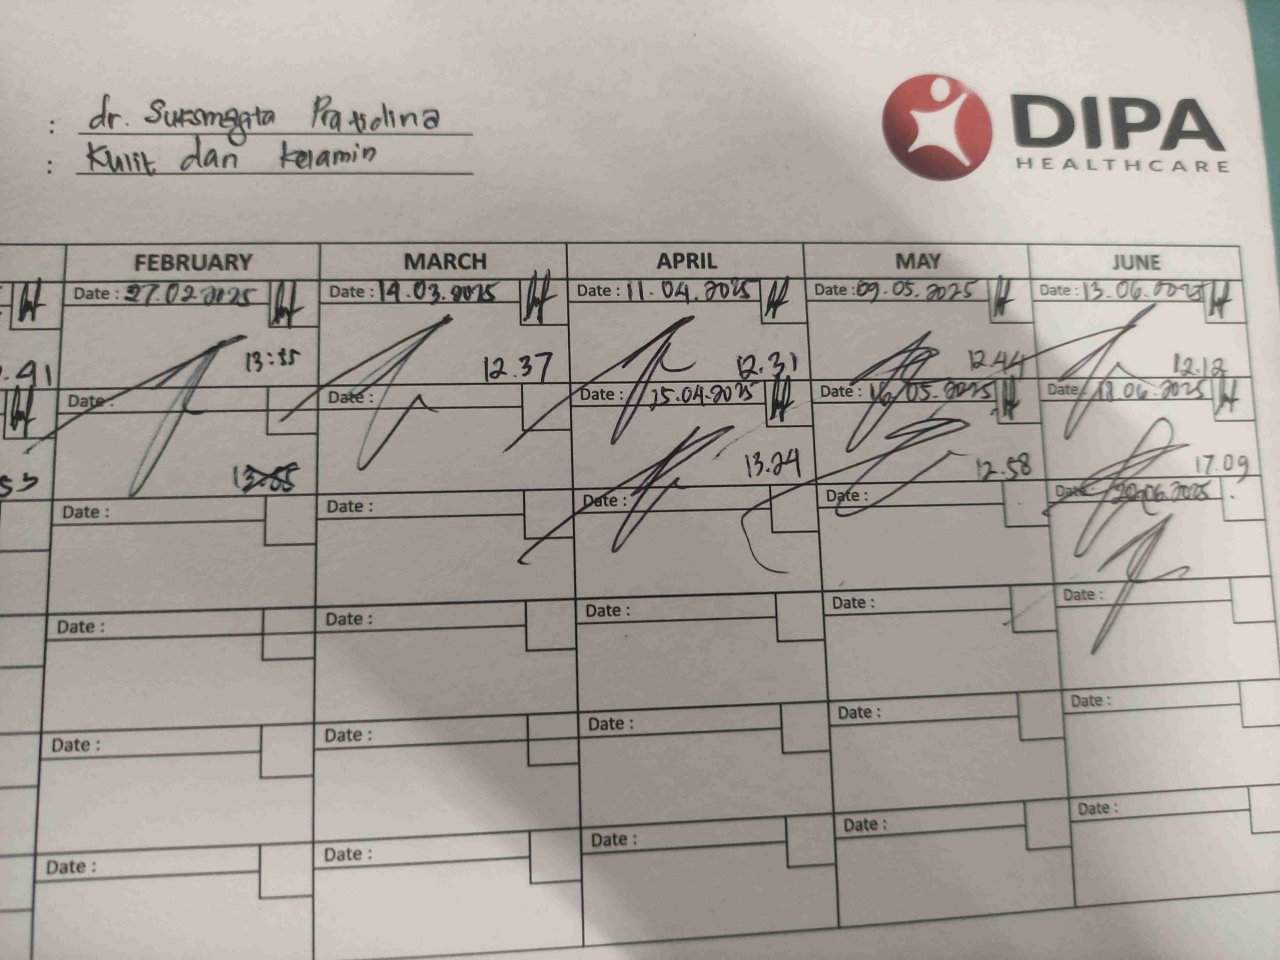 : dr. Suksmagita Pratidina
: Kulit dan Kelamin
DIPA
HEALTHCARE
FEBRUARY MARCH APRIL MAY JUNE
Date : 27.02.2025 Date : 14.03.2025 Date : 11.04.2025 Date : 09.05.2025 Date : 13.06.2025
.91 13:35 12.37 12.31 12.44 12.12
Date : Date : Date : 25.04.2025 Date : 16.05.2025 Date : 18.06.2025
53 13.24 12.58 17.09
Date : Date : Date : Date : Date : 20.06.2025
Date : Date : Date : Date : Date :
Date : Date : Date : Date : Date :
Date : Date : Date : Date : Date :